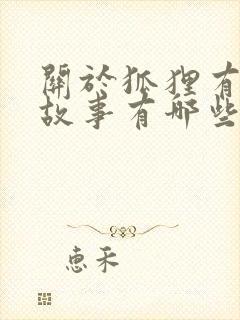 關於狐狸有
故事有哪些
惠禾